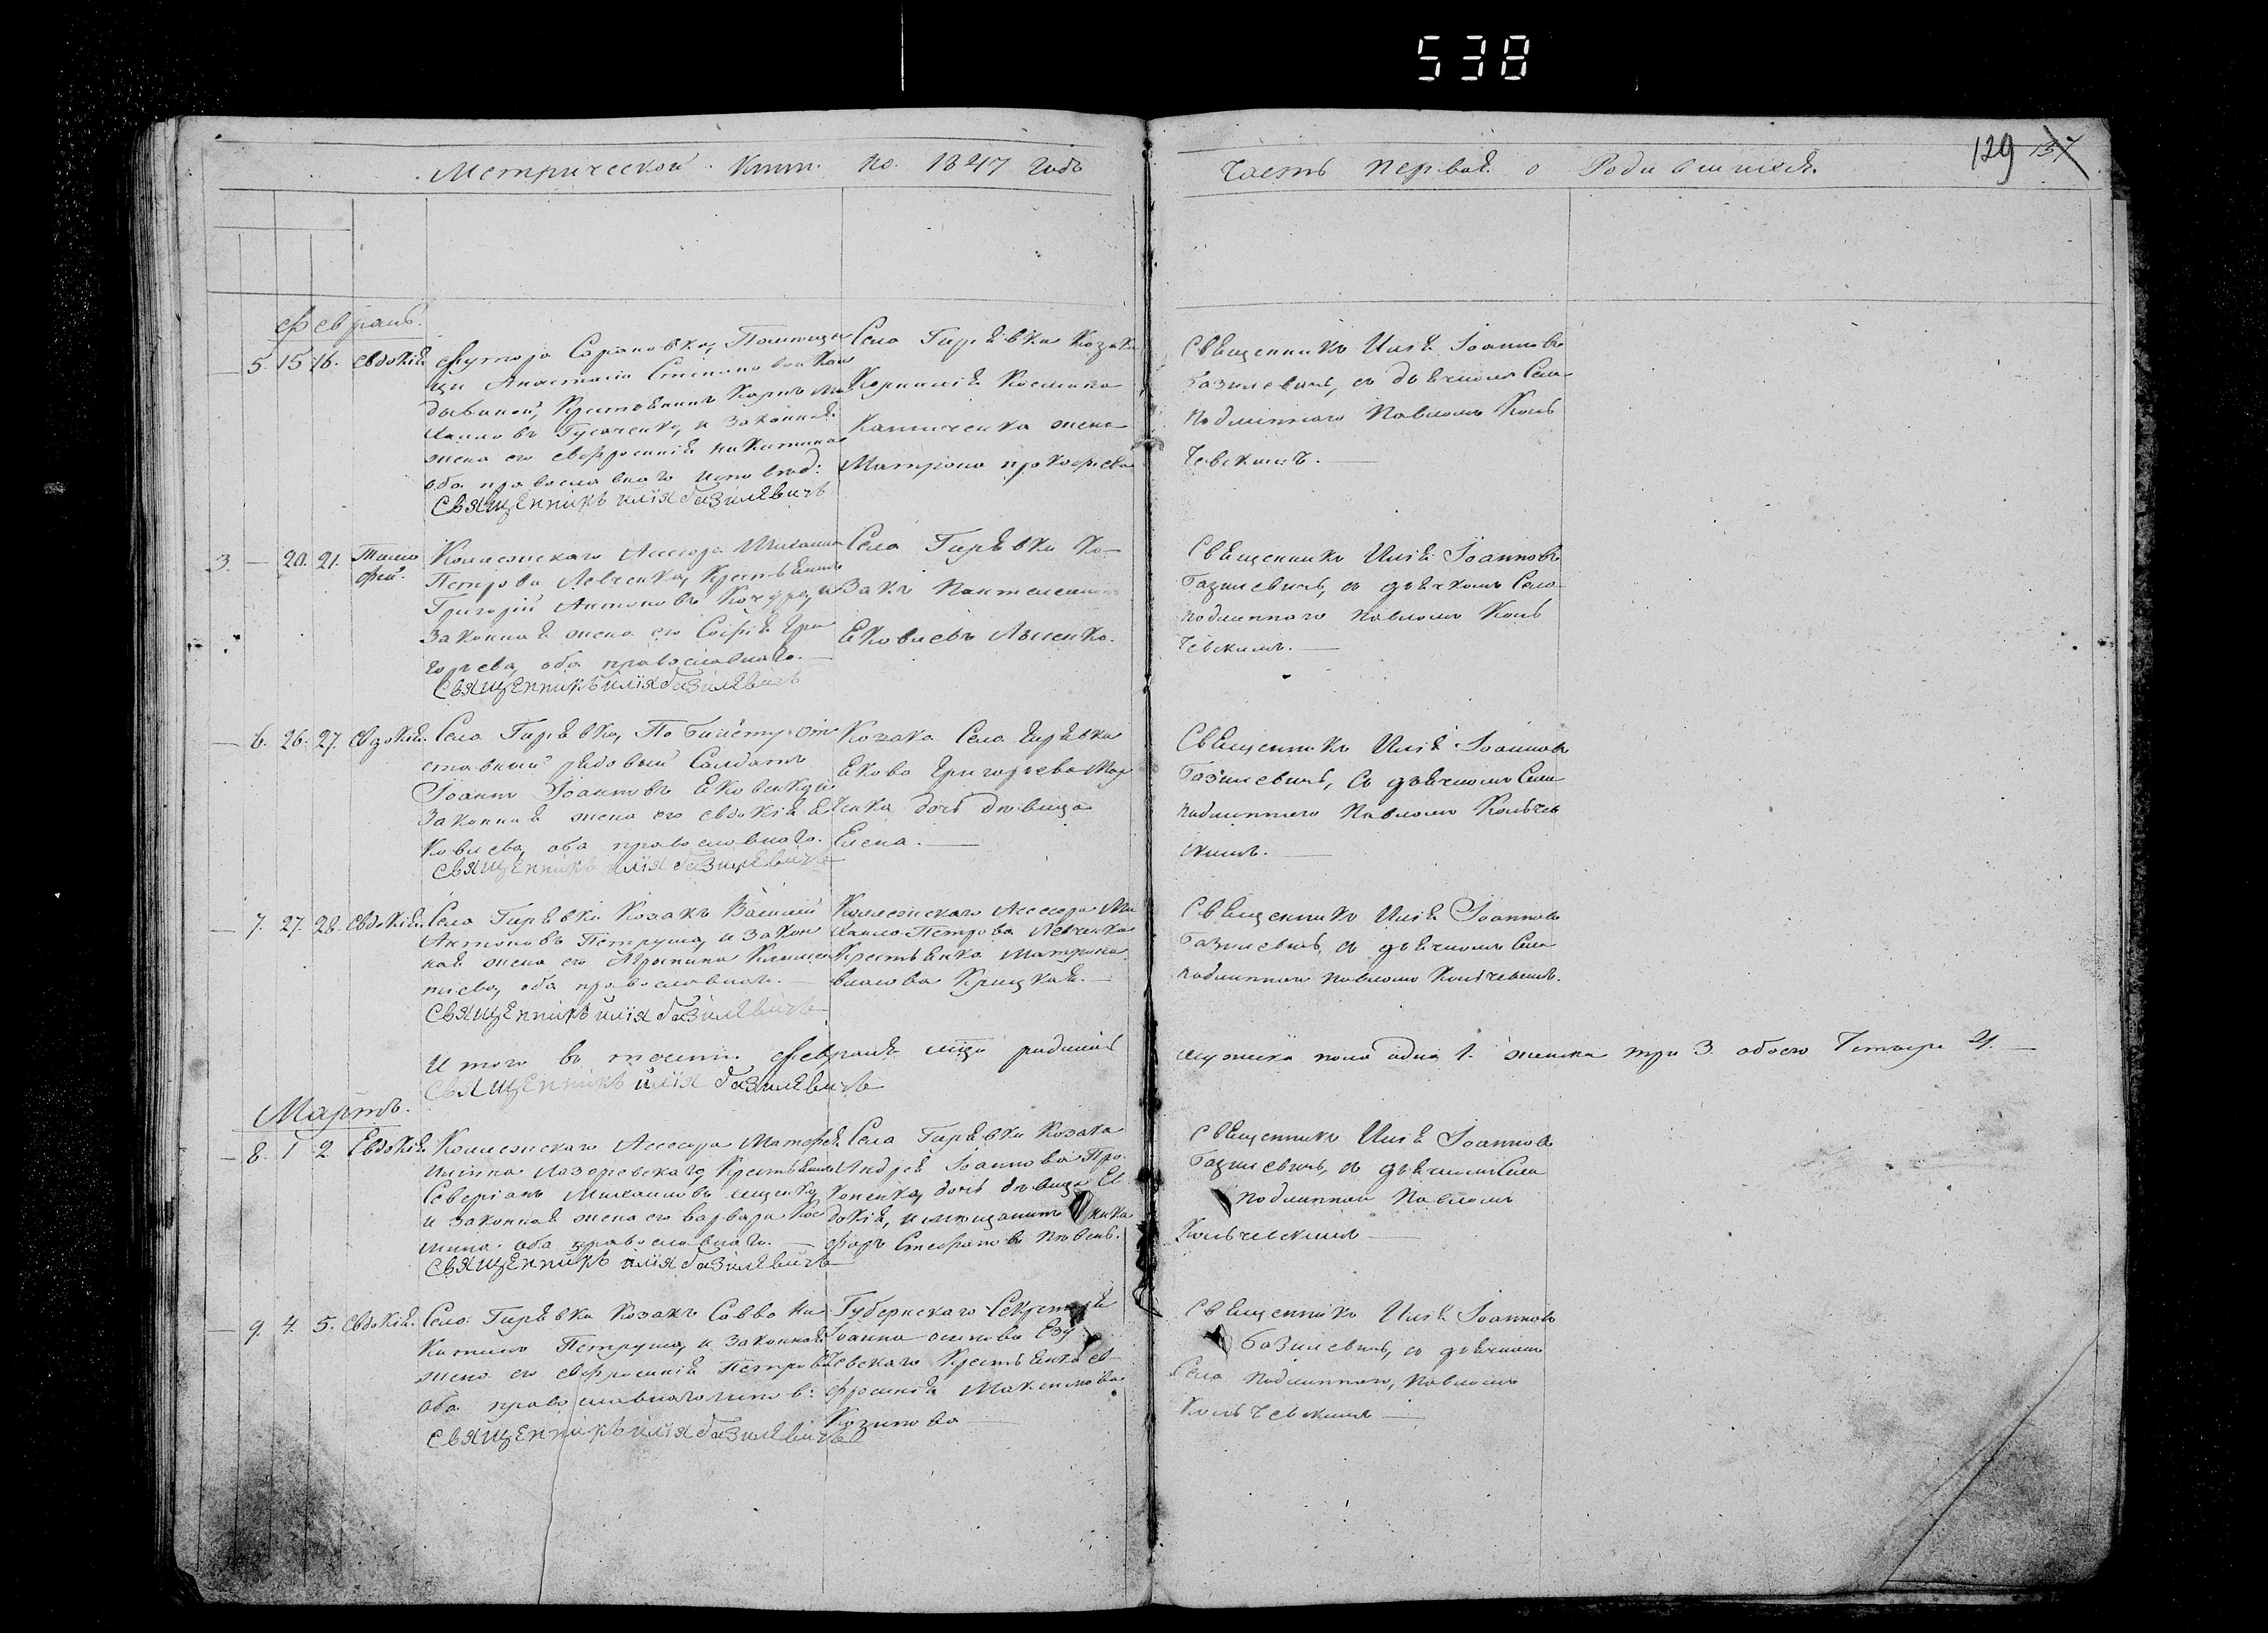 538
129 137
Метрической книг. на 1847 годъ
Часть первая о Родившихся.
Февраль.
5. 15. 16. Евдокія
Футора Помещи
цы Анастасіи Степановой Кан
дыбиной, Крестьянинъ Карпъ Ми
хаиловъ Гусаченко, и законная
жена его Евфросинія Никитина
оба православного исповед:
Священникъ Илія Базилевичъ
Села Гирявки Козака
Корнилія Космина
жена
Матрона Прокофіева
Священникъ Илія Іоанновъ
Базилевичъ, съ дьячкомъ Села
Подлипного Павломъ Коль
чевскимъ.
3. — 20. 21. Тимо
фей.
Коллежскаго Ассесора Михаила
Петрова Левченка, Крестьянинъ
Григорій Антоновъ Кочура, и
законная жена его Софія Гри
горьева, оба православнаго.
Священникъ Илія Базилевичъ
Села Гирявки Ко-
закъ Пантелеимонъ
Яковлевъ Лысенко.
Священникъ Илія Іоанновъ
Базилевичъ, съ дьячкомъ Села
Подлипного Павломъ Коль
чевскимъ.
— 6. 26. 27. Евдокія.
Села Гирявки, По билету от
ставный рядовый Салдатъ
Іоаннъ Іоанновъ
законная жена его Евдокія Я
ковлева, оба православнаго.
Священникъ Илія Базилевичъ
Козака Села Гирявки
Якова Григорьева Мар
ченка дочь девица
Елена.
Священникъ Илія Іоанновъ
Базилевичъ, съ дьячкомъ Села
Подлипного Павломъ Кольчев
скимъ.
— 7. 27. 28. Евдокія.
Села Гирявки Козакъ Василій
Антоновъ Петруша, и закон
ная жена его Агрипина Климен
тиева, оба православнаго.
Священникъ Илія Базилевичъ
Коллежскаго Ассесора Ми
хаила Петрова Левченка
Крестьянка Матрона
Власова Крицкая.
Священникъ Илія Іоанновъ
Базилевичъ, съ дьячкомъ Села
Подлипного Павломъ Кольчевскимъ.
Итого въ течени Февраля мца родилось
мужска пола одна 1. женска три 3. обоего Четыре 4.
Священникъ Илія Базилевичъ
Мартъ.
— 8. 1 2 Евдокія
Коллежскаго Ассесора Матфея
Ильина Лазоревскаго, Крестьянинъ
Северіанъ Михаиловъ
и законная жена его Варвара Кос
мина оба православнаго.
Священникъ Илія Базилевичъ
Села Гирявки Козака
Андрея Іоаннова Про
копенка, дочь девица Ев
докія, и мещанинъ Ника
форъ Стефановъ
Священникъ Илія Іоанновъ
Базилевичъ, съ дьячкомъ Села
Подлипного Павломъ
Кольчевскимъ
— 9. 4. 5. Евдокія.
Села Гирявки Козакъ Савва Ни
китинъ Петруша, и законная
жена его Евфросинія Петрова
оба православнаго испов:
Священникъ Илія Базилевичъ
Губернскаго Секретаря
Іоанна Осипова Езу
чевскаго Крестьянка Ев
фросинія Максимова
Козинова
Священникъ Илія Іоанновъ
Базилевичъ, съ дьячкомъ
Села Подлипного, Павломъ
Кольчевскимъ